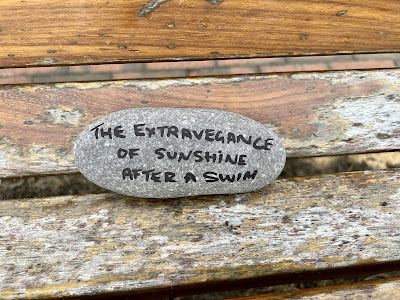 THE EXTRAVEGANCE
OF SUNSHINE
AFTER A SWIM